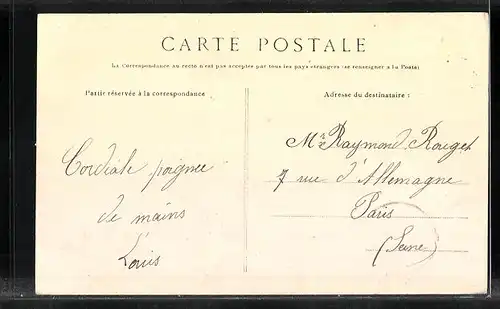 CARTE POSTALE
La Correspondance au recto n'est pas acceptée par tous les pays étrangers (se renseigner à la Poste)
Partie réservée à la correspondance
Adresse du destinataire :
Cordiale poignée
de mains
Louis
Mr Raymond Rouget
7 rue d'Allemagne
Paris
(Seine)